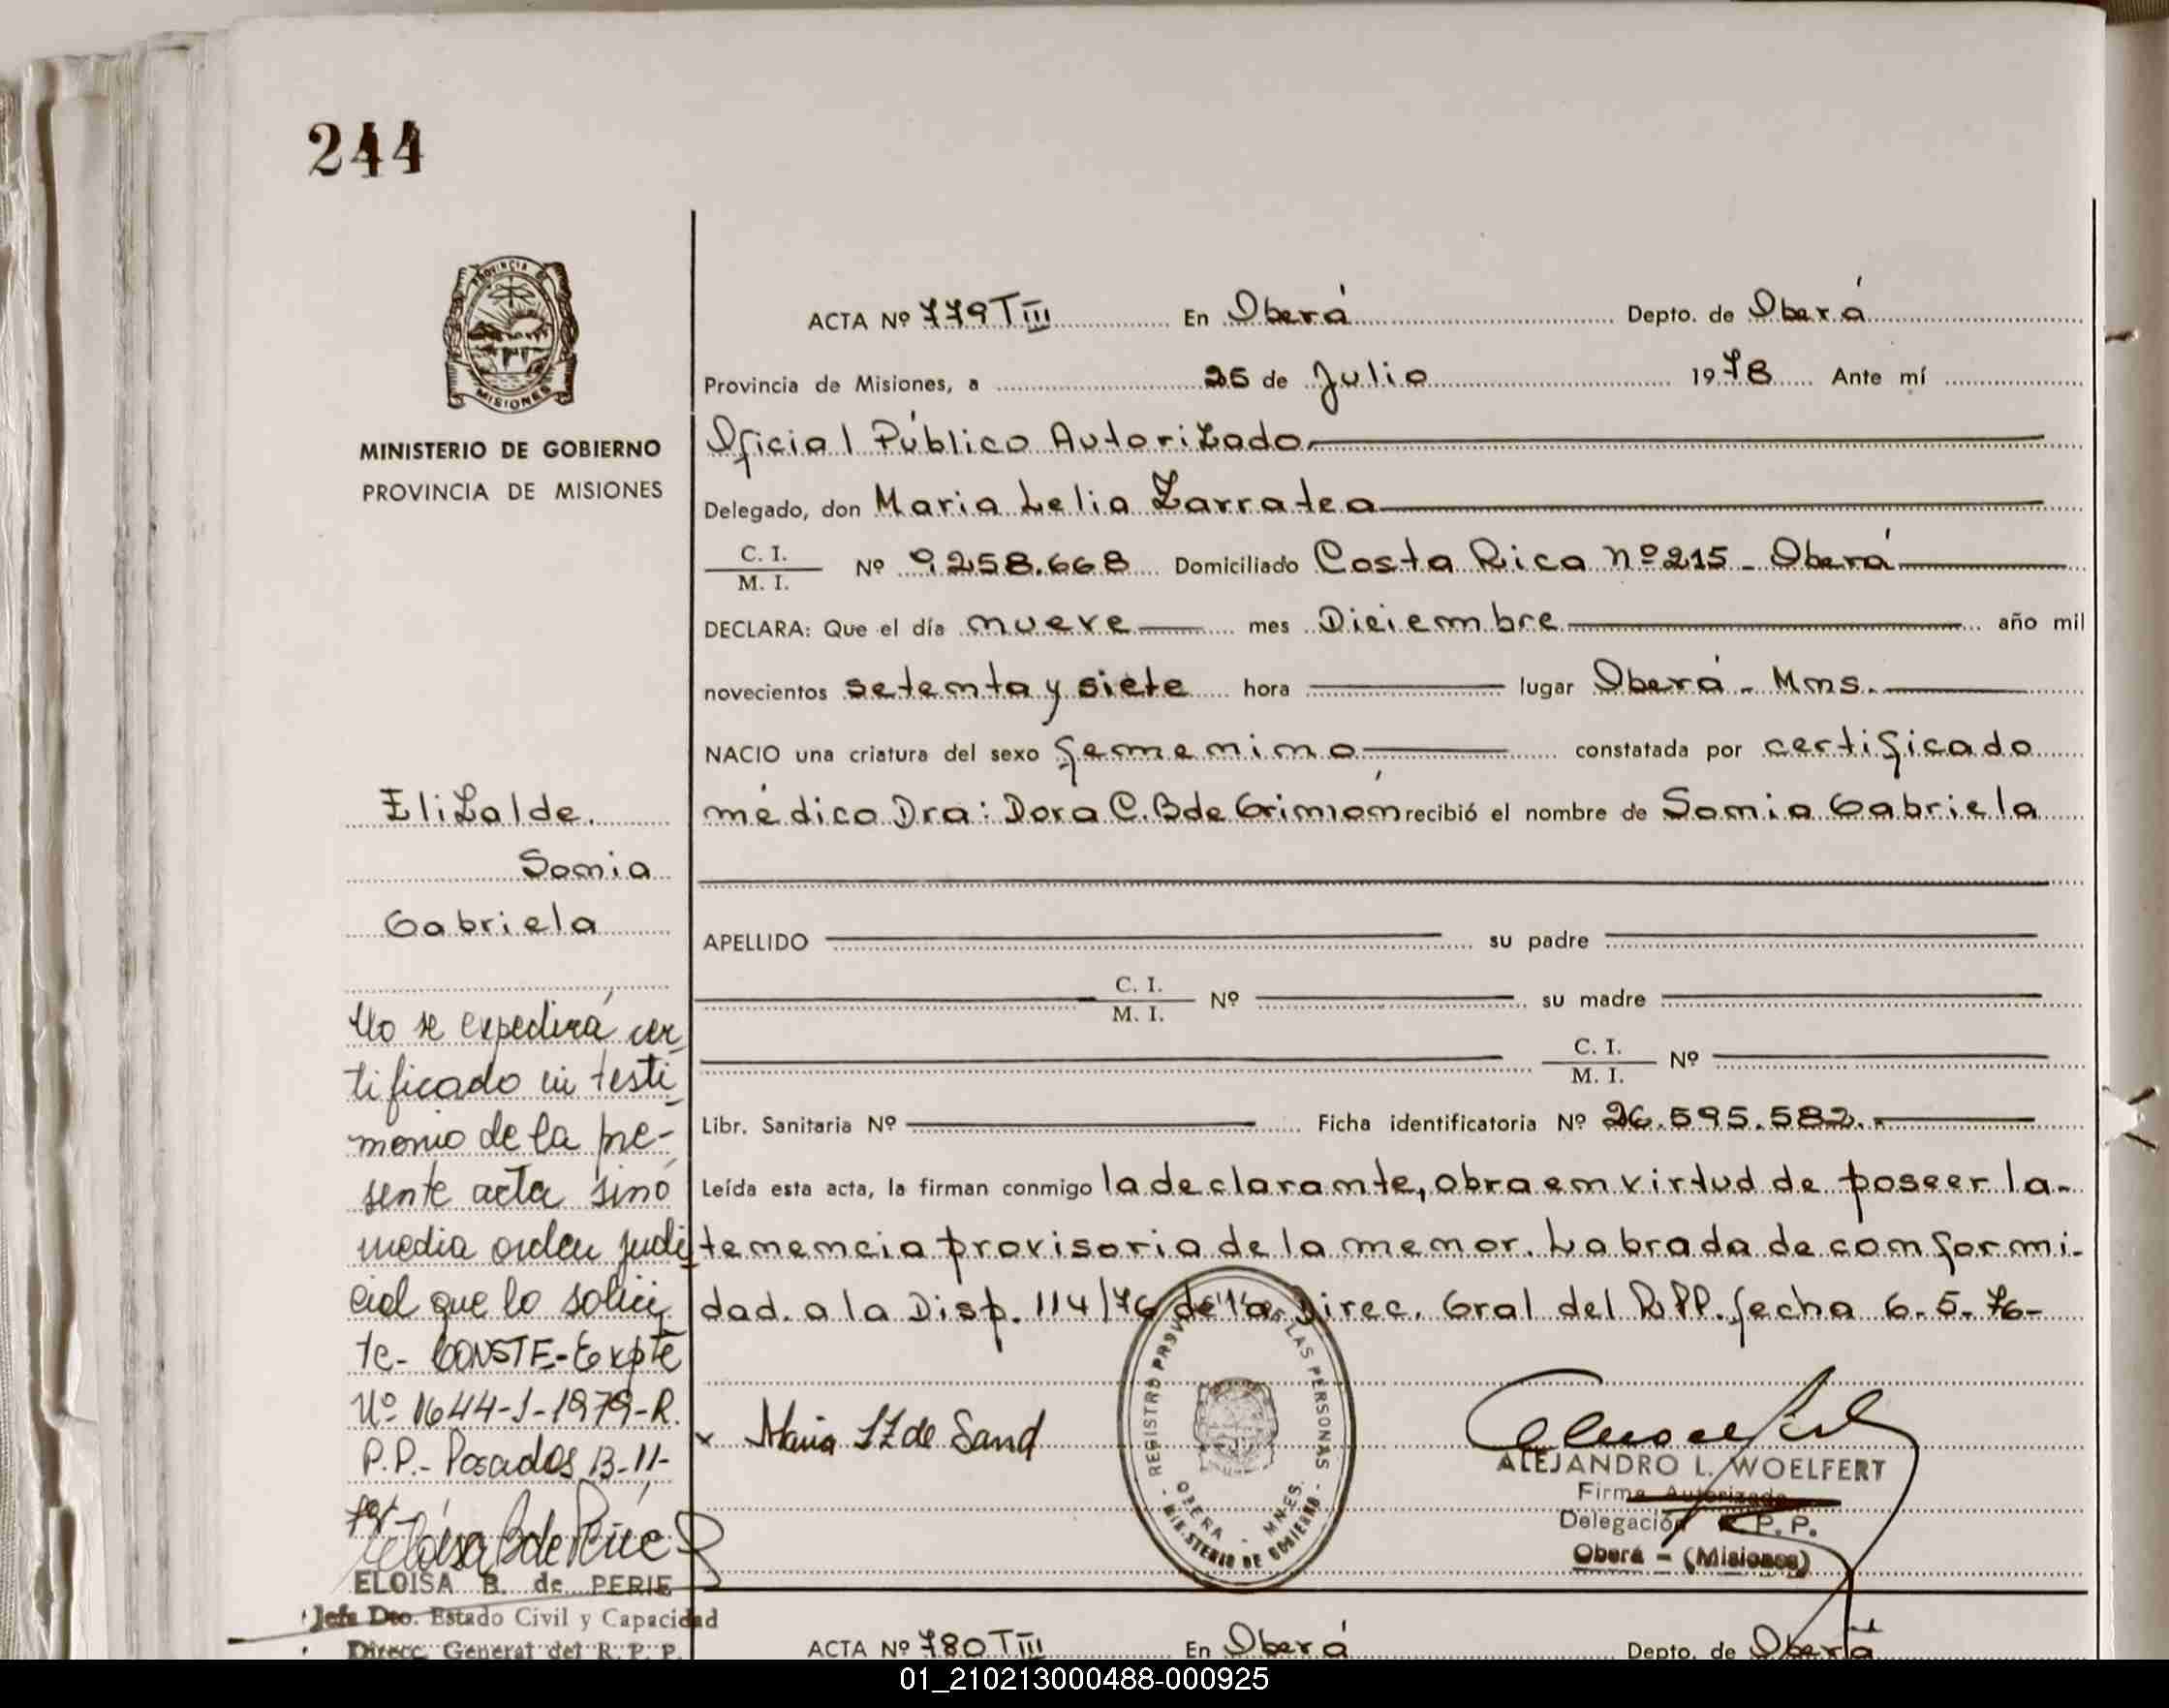 244
PROVINCIA DE
MISIONES
MINISTERIO DE GOBIERNO
PROVINCIA DE MISIONES
EliZalde.
Sonia
Gabriela
No se expedirá cer
tificado ni testi
monio de la pre-
sente acta sinó
media orden judi
cial que lo solici
te- CONSTE- Expte
Nº 1644-J-1979-R.
P.P.- Posadas 13-11-
79-
ELOISA B. de PERIE
Jefa Dto. Estado Civil y Capacidad
Direcc. General del R. P. P.
ACTA Nº 779 T III En Oberá Depto. de Oberá
Provincia de Misiones, a 25 de Julio 1978 Ante mí
Oficial Público AutoriZado
Delegado, don Maria Lelia Zarratea
C. I.
M. I. Nº 9.258.668 Domiciliado Costa Rica Nº 215 - Oberá
DECLARA: Que el día nueve mes Diciembre año mil
novecientos setenta y siete hora lugar Oberá - Mnes.
NACIO una criatura del sexo femenino constatada por certificado
médico Dra: Dora C. B de recibió el nombre de Sonia Gabriela
APELLIDO su padre
C. I.
M. I. Nº su madre
C. I.
M. I. Nº
Libr. Sanitaria Nº Ficha identificatoria Nº 26.595.582.-
Leída esta acta, la firman conmigo la declarante, obra en virtud de poseer la-
tenencia provisoria de la menor. Labrada de conformi-
dad. a la Disp. 114/76 de la Direc. Gral del R.P.P. fecha 6-5-76-
x Maria L Z de Sand
REGISTRO PROV. DE LAS PERSONAS
OBERA - MNES.
- MINISTERIO DE GOBIERNO -
ALEJANDRO L. WOELFERT
Firma Autorizada
Delegación R. P. P.
Oberá - (Misiones)
ACTA Nº 780 T III En Oberá Depto. de Oberá
01_210213000488-000925